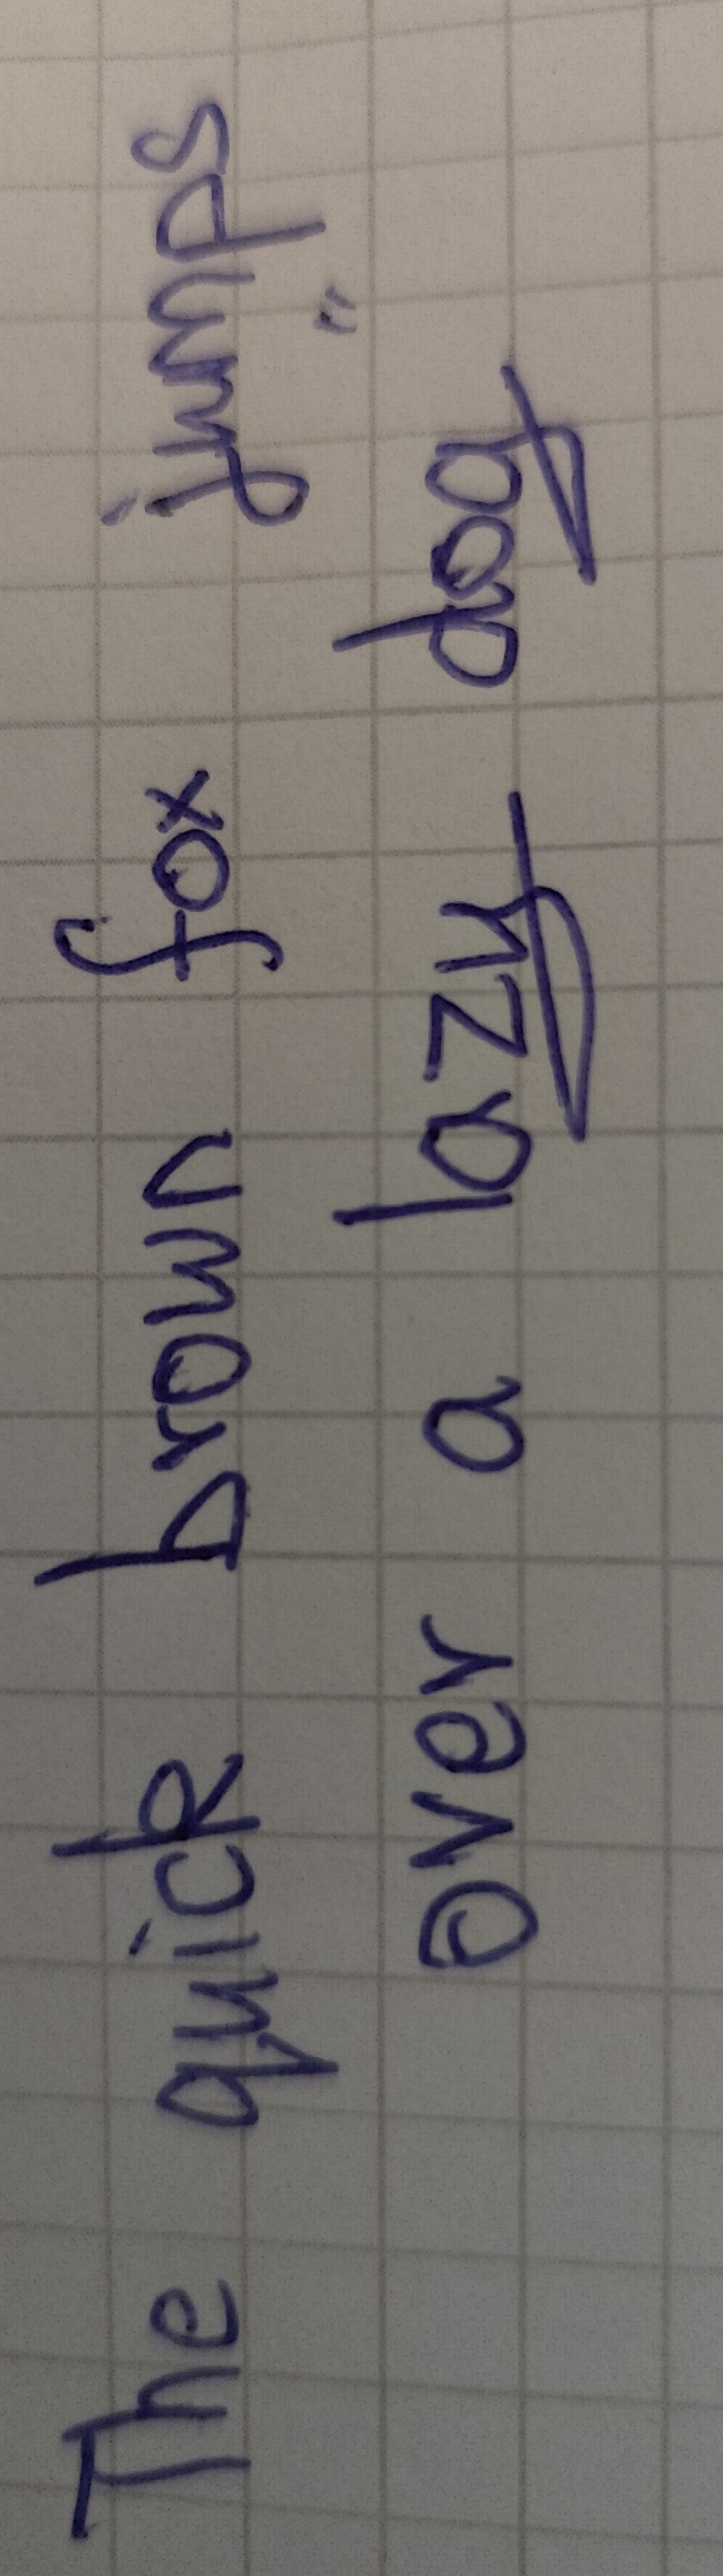 The quick brown fox jumps
over a lazy dog"